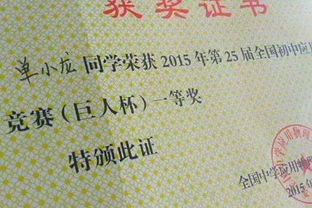 获奖证书
单小龙 同学荣获 2015 年第 25 届全国初中应
竞赛（巨人杯）一等奖
特颁此证
全国中学应用物
2015年